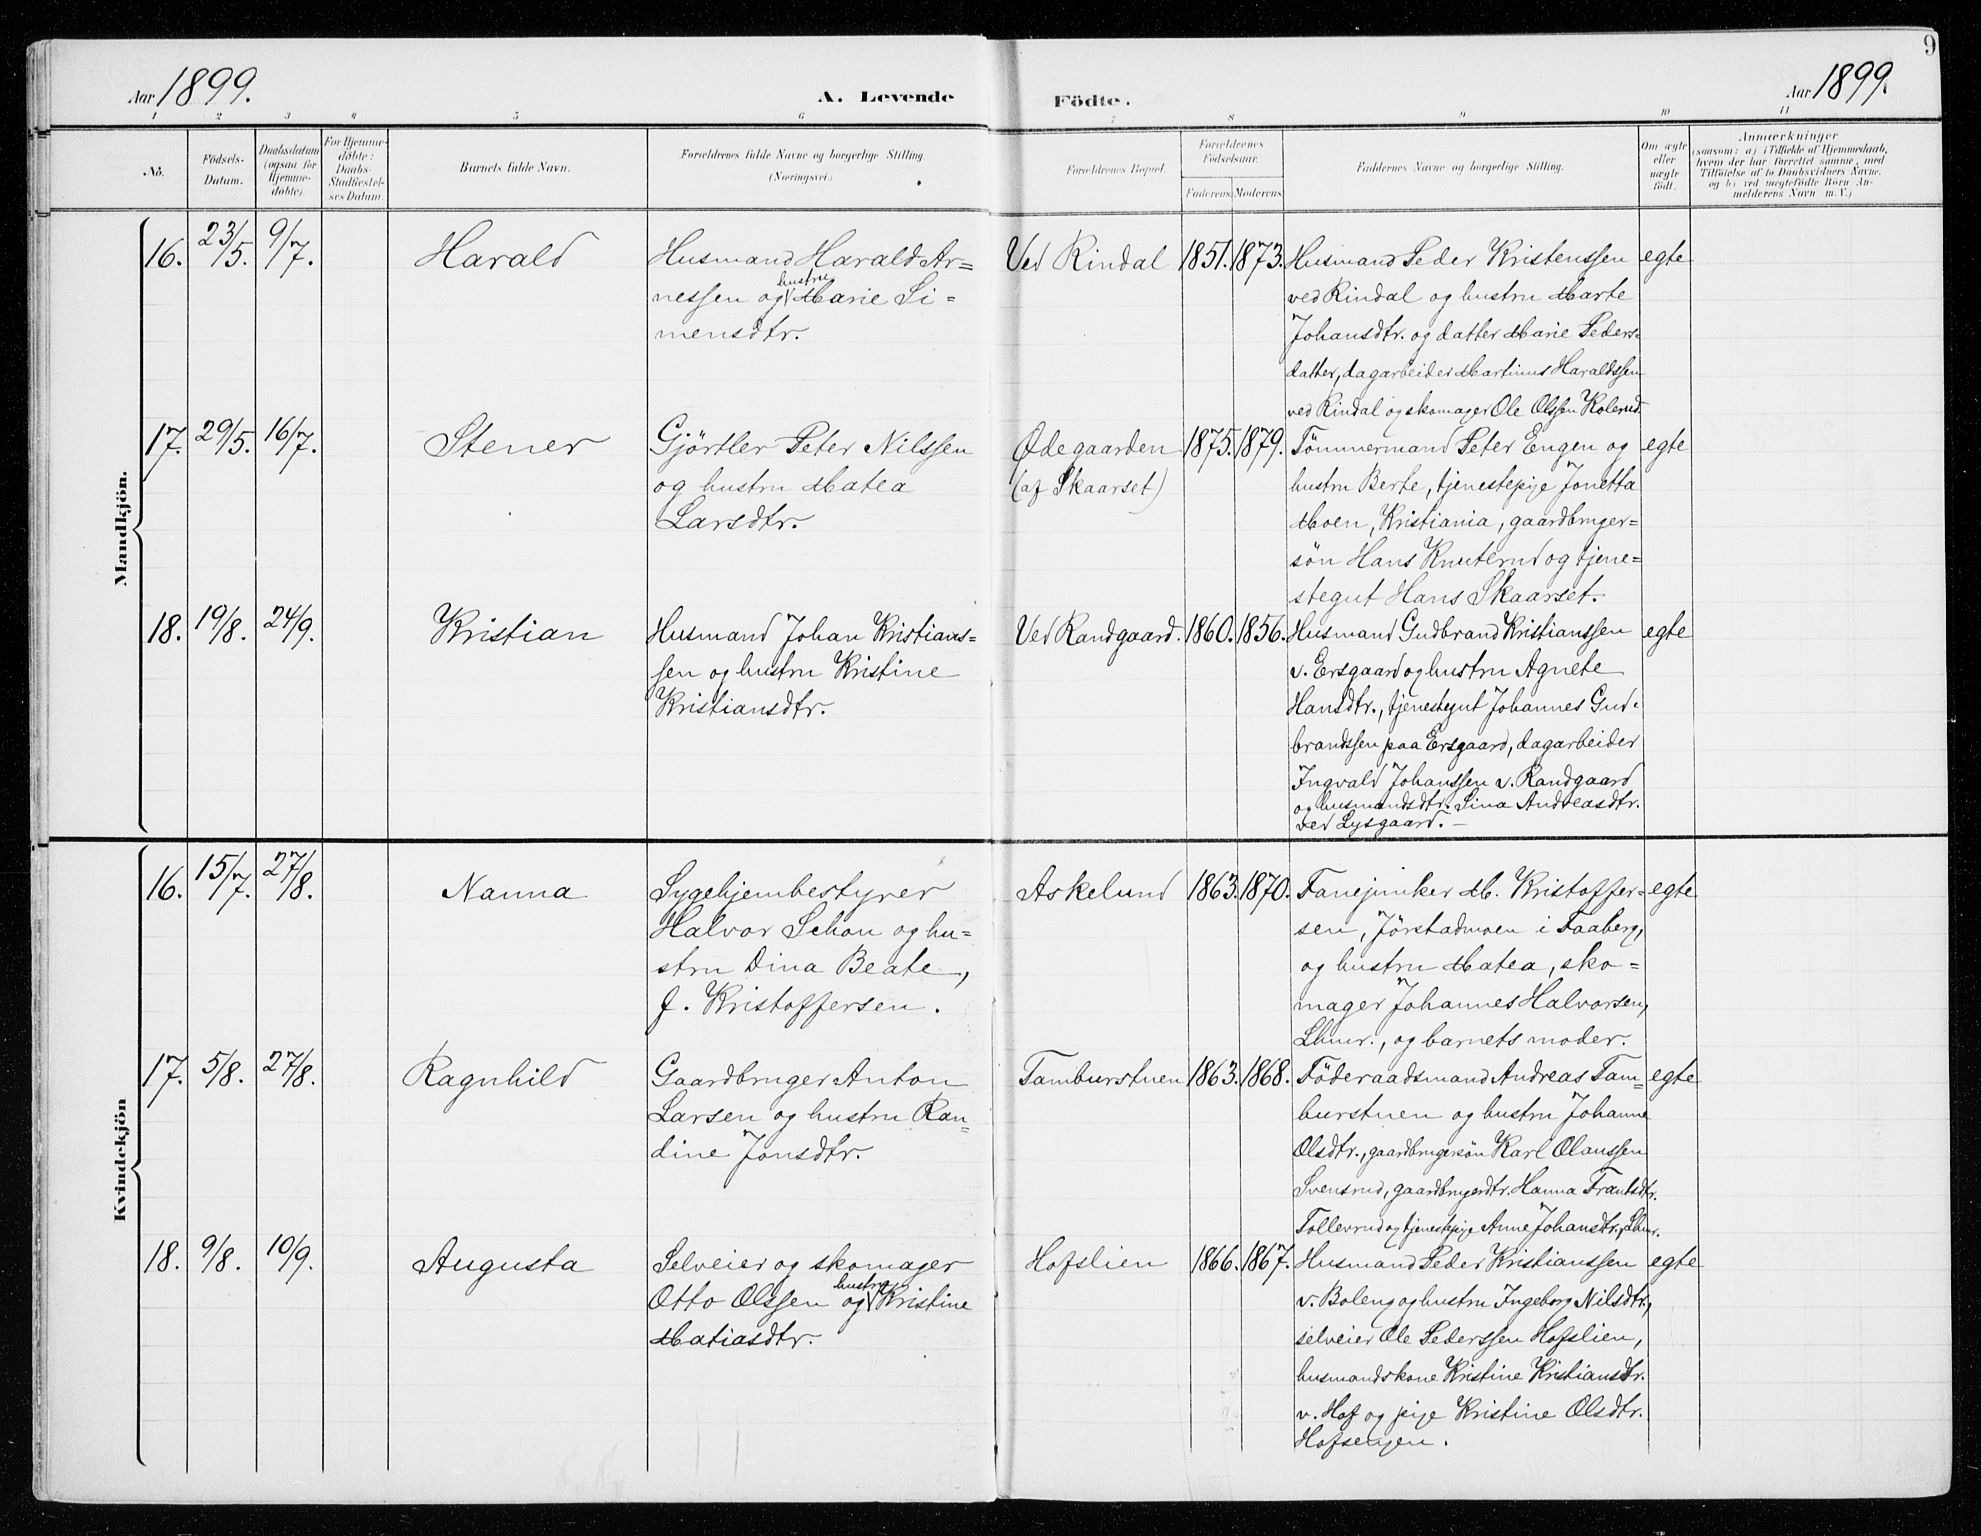 9
Aar 1899.
A. Levende
Födte.
Aar 1899.
1 2 3 4 5 6 7 8 9 10 11
No.
Födsels-
Datum.
Daabsdatum
(ogsaa for
Hjemme-
döbte).
For Hjemme-
döbte:
Daabs-
Stadfæstel-
ses Datum.
Barnets fulde Navn.
Forældrenes fulde Navne og borgerlige Stilling
(Næringsvei.)
Forældrenes Bopæl.
Forældrenes
Födselsaar.
Faderens
Moderens
Faddernes Navne og borgerlige Stilling.
Om ægte
eller
uægte
födt.
Anmærkninger
(saasom: a) i Tilfælde af Hjemmedaab,
hvem der har forrettet samme, med
Tilföielse af to Daabsvidners Navne,
og b) ved uægtefödte Börn An-
melderens Navn m. V.)
Mandkjön.
16. 23/5. 9/7.
Harald
Husmand Harald Ar=
nessen og hustru Marie Si=
mensdtr.
Ved Rindal
1851. 1873.
Husmand Peder Kristenssen
ved Rindal og hustru Marte
Johansdtr. og datter Marie Peders-
datter, dagarbeider Martinus Haraldssen
ved Rindal og skomager Ole Olssen Kolerud.
egte
17. 29/5. 16/7.
Stener
Gjörtler Peter Nilssen
og hustru Matea
Larsdtr.
Ødegaarden
(af Skaarset)
1875. 1879.
Tömmermand Peter Engen og
hustru Berte, tjenestepige Jonetta
Moen, Kristiania, gaardbruger=
sön Hans Knuterud og tjene=
stegut Hans Skaarset.
egte
18. 19/8. 24/9.
Kristian
Husmand Johan Kristians=
sen og hustru Kristine
Kristiansdtr.
Ved Randgaard.
1860. 1856.
Husmand Gudbrand Kristianssen
v. Ersgaard og hustru Agnete
Hansdtr., tjenestegut Johannes Gud-
brandssen paa Ersgaard, dagarbeider
Ingvald Johanssen v. Randgaard
og husmandsdtr. Lina Andreasdtr.
ved Lysgaard. -
egte
Kvindekjön
16. 15/7. 27/8.
Nanna
Sygehjembestyrer
Halvor Schou og hu=
stru Dina Beate,
f. Kristoffersen.
Askelund
1863. 1870.
Fanejunker M. Kristoffer=
sen, Jörstadmoen i Faaberg,
og hustru Matea, sko=
mager Johannes Halvorsen,
Lhmr., og barnets moder.
egte
17. 5/8. 27/8.
Ragnhild
Gaardbruger Anton
Larsen og hustru Ran=
dine Jonsdtr.
Tamburstuen
1863. 1868.
Föderaadsmand Andreas Tam=
burstuen og hustru Johanne
Olsdtr., gaardbrugersön Karl Olaussen
Svensrud, gaardbrugerdtr. Hanna Frantsdtr.
Tollersrud og tjenestepige Anne Johansdtr., Lhmr.
egte
18. 9/8. 10/9.
Augusta
Selveier og skomager
Otto Olssen og hustru Kristine
Matiasdtr.
Hofslien
1866. 1867.
Husmand Peder Kristianssen
v. Boleng og hustru Ingeborg Nilsdtr.,
selveier Ole Pederssen Hofslien,
husmandskone Kristine Kristiansdtr.
v. Hof og pige Kristine Olsdtr.
Hofsengen.
egte